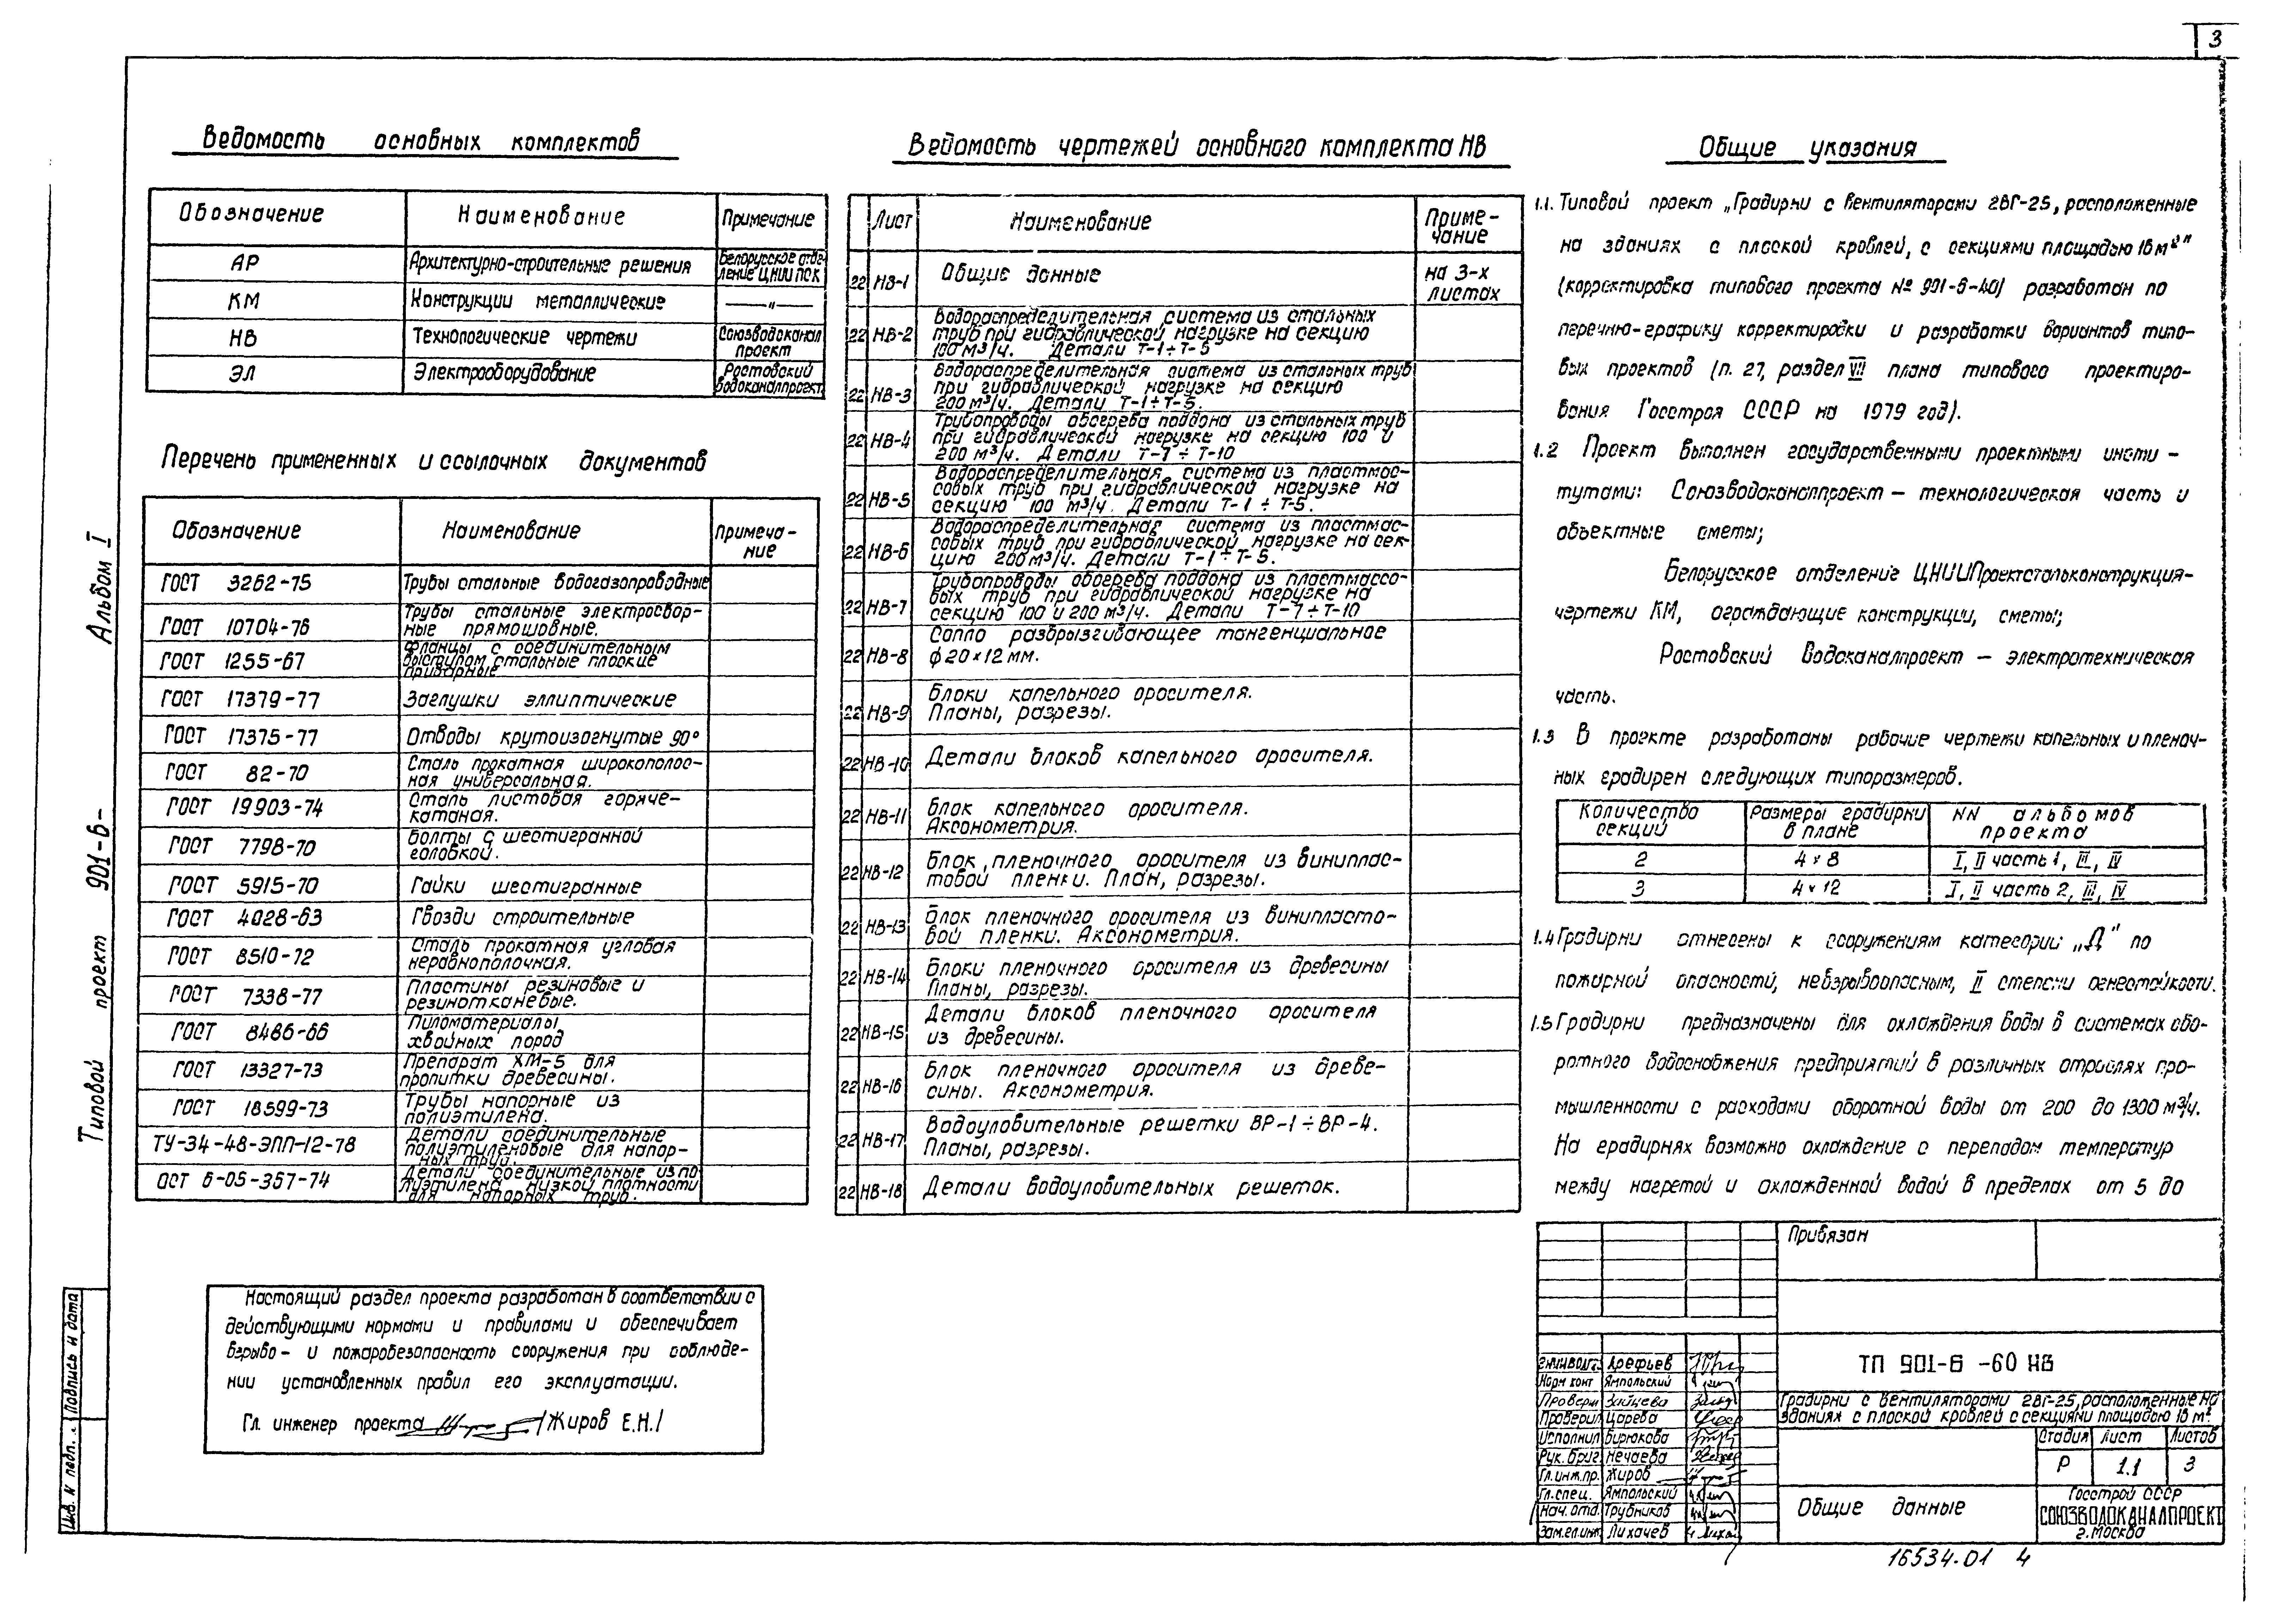 3
Ведомость основных комплектов
Обозначение Наименование Примечание
АР Архитектурно-строительные решения Белорусское отде-
ление ЦНИИ ПСК
КМ Конструкции металлические —„—
НВ Технологические чертежи Союзводоканал
проект
ЭЛ Электрооборудование Ростовский
водоканалпроект
Перечень примененных и ссылочных документов
Обозначение Наименование Примеча-
ние
ГОСТ 3262-75 Трубы стальные водогазопроводные
ГОСТ 10704-76 Трубы стальные электросвар-
ные прямошовные.
ГОСТ 1255-67 Фланцы с соединительным
выступом стальные плоские
приварные
ГОСТ 17379-77 Заглушки эллиптические
ГОСТ 17375-77 Отводы крутоизогнутые 90°
ГОСТ 82-70 Сталь прокатная широкополос-
ная универсальная.
ГОСТ 19903-74 Сталь листовая горяче-
катаная.
ГОСТ 7798-70 Болты с шестигранной
головкой.
ГОСТ 5915-70 Гайки шестигранные
ГОСТ 4028-63 Гвозди строительные
ГОСТ 8510-72 Сталь прокатная угловая
неравнополочная.
ГОСТ 7338-77 Пластины резиновые и
резинотканевые.
ГОСТ 8486-66 Пиломатериалы
хвойных пород
ГОСТ 13327-73 Препарат ХМ-5 для
пропитки древесины.
ГОСТ 18599-73 Трубы напорные из
полиэтилена.
ТУ-34-48-ЭПП-12-78 Детали соединительные
полиэтиленовые для напор-
ных труб.
ОСТ 6-05-367-74 Детали соединительные из по
лиэтилена низкой плотности
для напорных труб.
Настоящий раздел проекта разработан в соответствии с
действующими нормами и правилами и обеспечивает
взрыво- и пожаробезопасность сооружения при соблюде-
нии установленных правил его эксплуатации.
Гл. инженер проекта /Жиров Е.Н./
Ведомость чертежей основного комплекта НВ
Лист Наименование Приме-
чание
22 НВ-1 Общие данные на 3-х
листах
22 НВ-2 Водораспределительная система из стальных
труб при гидравлической нагрузке на секцию
100 м³/ч. Детали Т-1÷Т-5
22 НВ-3 Водораспределительная система из стальных труб
при гидравлической нагрузке на секцию
200 м³/ч. Детали Т-1÷Т-5.
22 НВ-4 Трубопроводы обогрева поддона из стальных труб
при гидравлической нагрузке на секцию 100 и
200 м³/ч. Детали Т-7÷Т-10
22 НВ-5 Водораспределительная система из пластмас-
совых труб при гидравлической нагрузке на
секцию 100 м³/ч. Детали Т-1÷Т-5.
22 НВ-6 Водораспределительная система из пластмас-
совых труб при гидравлической нагрузке на сек-
цию 200 м³/ч. Детали Т-1÷Т-5.
22 НВ-7 Трубопроводы обогрева поддона из пластмассо-
вых труб при гидравлической нагрузке на
секцию 100 и 200 м³/ч. Детали Т-7÷Т-10
22 НВ-8 Сопло разбрызгивающее тангенциальное
ф 20×12 мм.
22 НВ-9 Блоки капельного оросителя.
Планы, разрезы.
22 НВ-10 Детали блоков капельного оросителя.
22 НВ-11 Блок капельного оросителя.
Аксонометрия.
22 НВ-12 Блок пленочного оросителя из виниплас-
товой пленки. План, разрезы.
22 НВ-13 Блок пленочного оросителя из винипласто-
вой пленки. Аксонометрия.
22 НВ-14 Блоки пленочного оросителя из древесины
Планы, разрезы.
22 НВ-15 Детали блоков пленочного оросителя
из древесины.
22 НВ-16 Блок пленочного оросителя из древе-
сины. Аксонометрия.
22 НВ-17 Водоуловительные решетки ВР-1÷ВР-4.
Планы, разрезы.
22 НВ-18 Детали водоуловительных решеток.
Общие указания
1.1. Типовой проект „Градирни с вентиляторами 2ВГ-25, расположенные
на зданиях с плоской кровлей, с секциями площадью 16 м²"
(корректировка типового проекта № 901-6-40) разработан по
перечню-графику корректировки и разработки вариантов типо-
вых проектов (п. 27, раздел VII плана типового проектиро-
вания Госстроя СССР на 1979 год).
1.2 Проект выполнен государственными проектными инсти-
тутами: Союзводоканалпроект — технологическая часть и
объектные сметы;
Белорусское отделение ЦНИИПроектстальконструкция-
чертежи КМ, ограждающие конструкции, сметы;
Ростовский Водоканалпроект — электротехническая
часть.
1.3 В проекте разработаны рабочие чертежи капельных и пленоч-
ных градирен следующих типоразмеров.
Количество
секций Размеры градирни
в плане NN альбомов
проекта
2 4×8 I, II часть 1, III, IV
3 4×12 I, II часть 2, III, IV
1.4 Градирни отнесены к сооружениям категории „Д" по
пожарной опасности, невзрывоопасным, II степени огнестойкости.
1.5 Градирни предназначены для охлаждения воды в системах обо-
ротного водоснабжения предприятий в различных отраслях про-
мышленности с расходами оборотной воды от 200 до 1300 м³/ч.
На градирнях возможно охлаждение с перепадом температур
между нагретой и охлажденной водой в пределах от 5 до
Привязан
ТП 901-6-60 НВ
Градирни с вентиляторами 2ВГ-25, расположенные на
зданиях с плоской кровлей с секциями площадью 16 м².
Арефьев
Норм конт Ямпольский
Проверил Зайцева
Проверил Царева
Исполнил Бирюкова
Рук. бриг. Нечаева
Гл. инж. пр. Жиров
Гл. спец. Ямпольский
Нач. отд. Трубников
Зам.гл.инж Лихачев
Стадия Лист Листов
Р 1.1 3
Общие данные
Госстрой СССР
СОЮЗВОДОКАНАЛПРОЕКТ
г. Москва
16534-01 4
Типовой проект 901-6- Альбом I
Инв. N подл. Подпись и дата